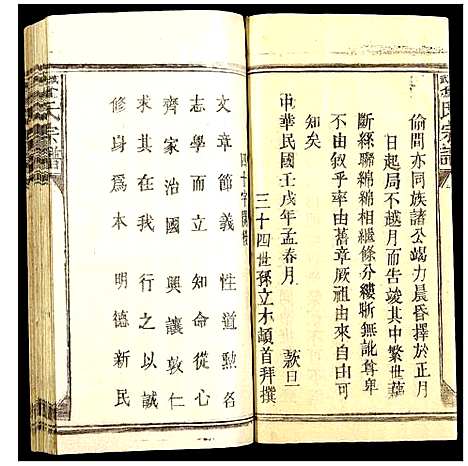 氏宗譜
偷間亦同族諸公竭力晨昏擇於正月
日起局不越月而告竣其中繁世
斷經聯綿綿相繼條分縷晰無訛尊卑
不由叙乎率由舊章厥祖由來自可
知矣
中華民國壬戌年孟春月 穀旦
三十四世孫立木頓首拜撰
四十字
文章節義 性道勲名
志學而立 知命從心
齊家治國 興讓敦仁
求其在我 行之以誠
修身為本 明德新民
氏宗譜